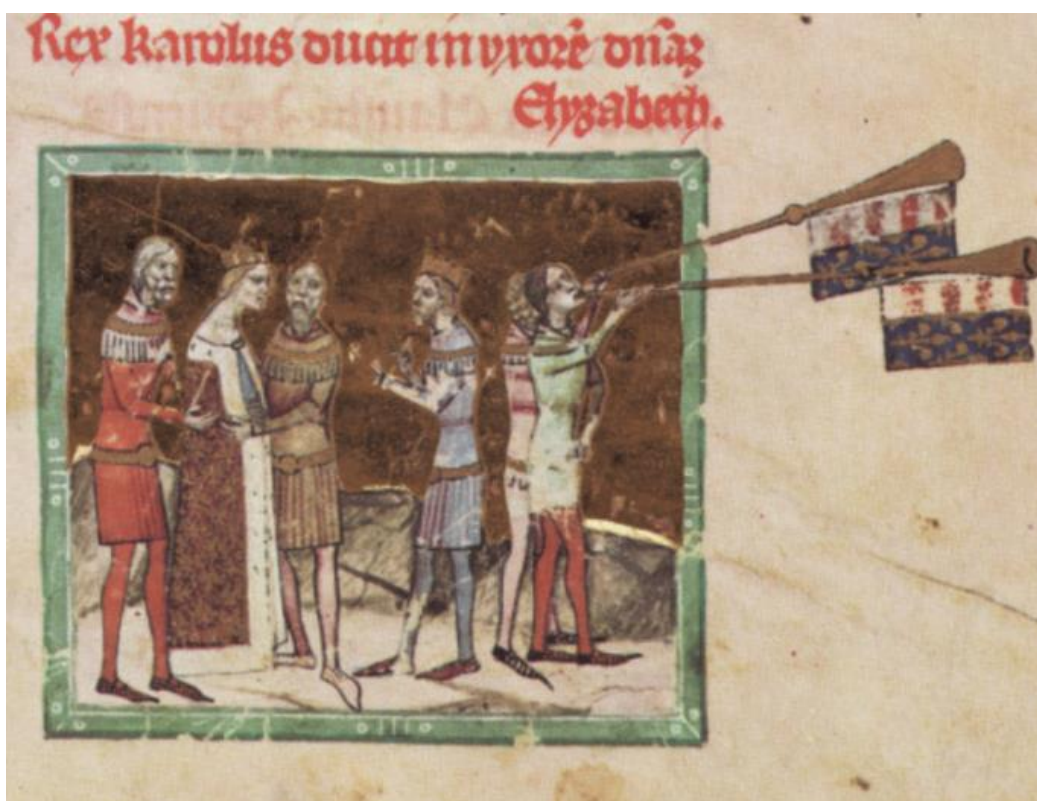 Rex karolus ducit in uxorē dn̄aȝ
Elyzabeth.